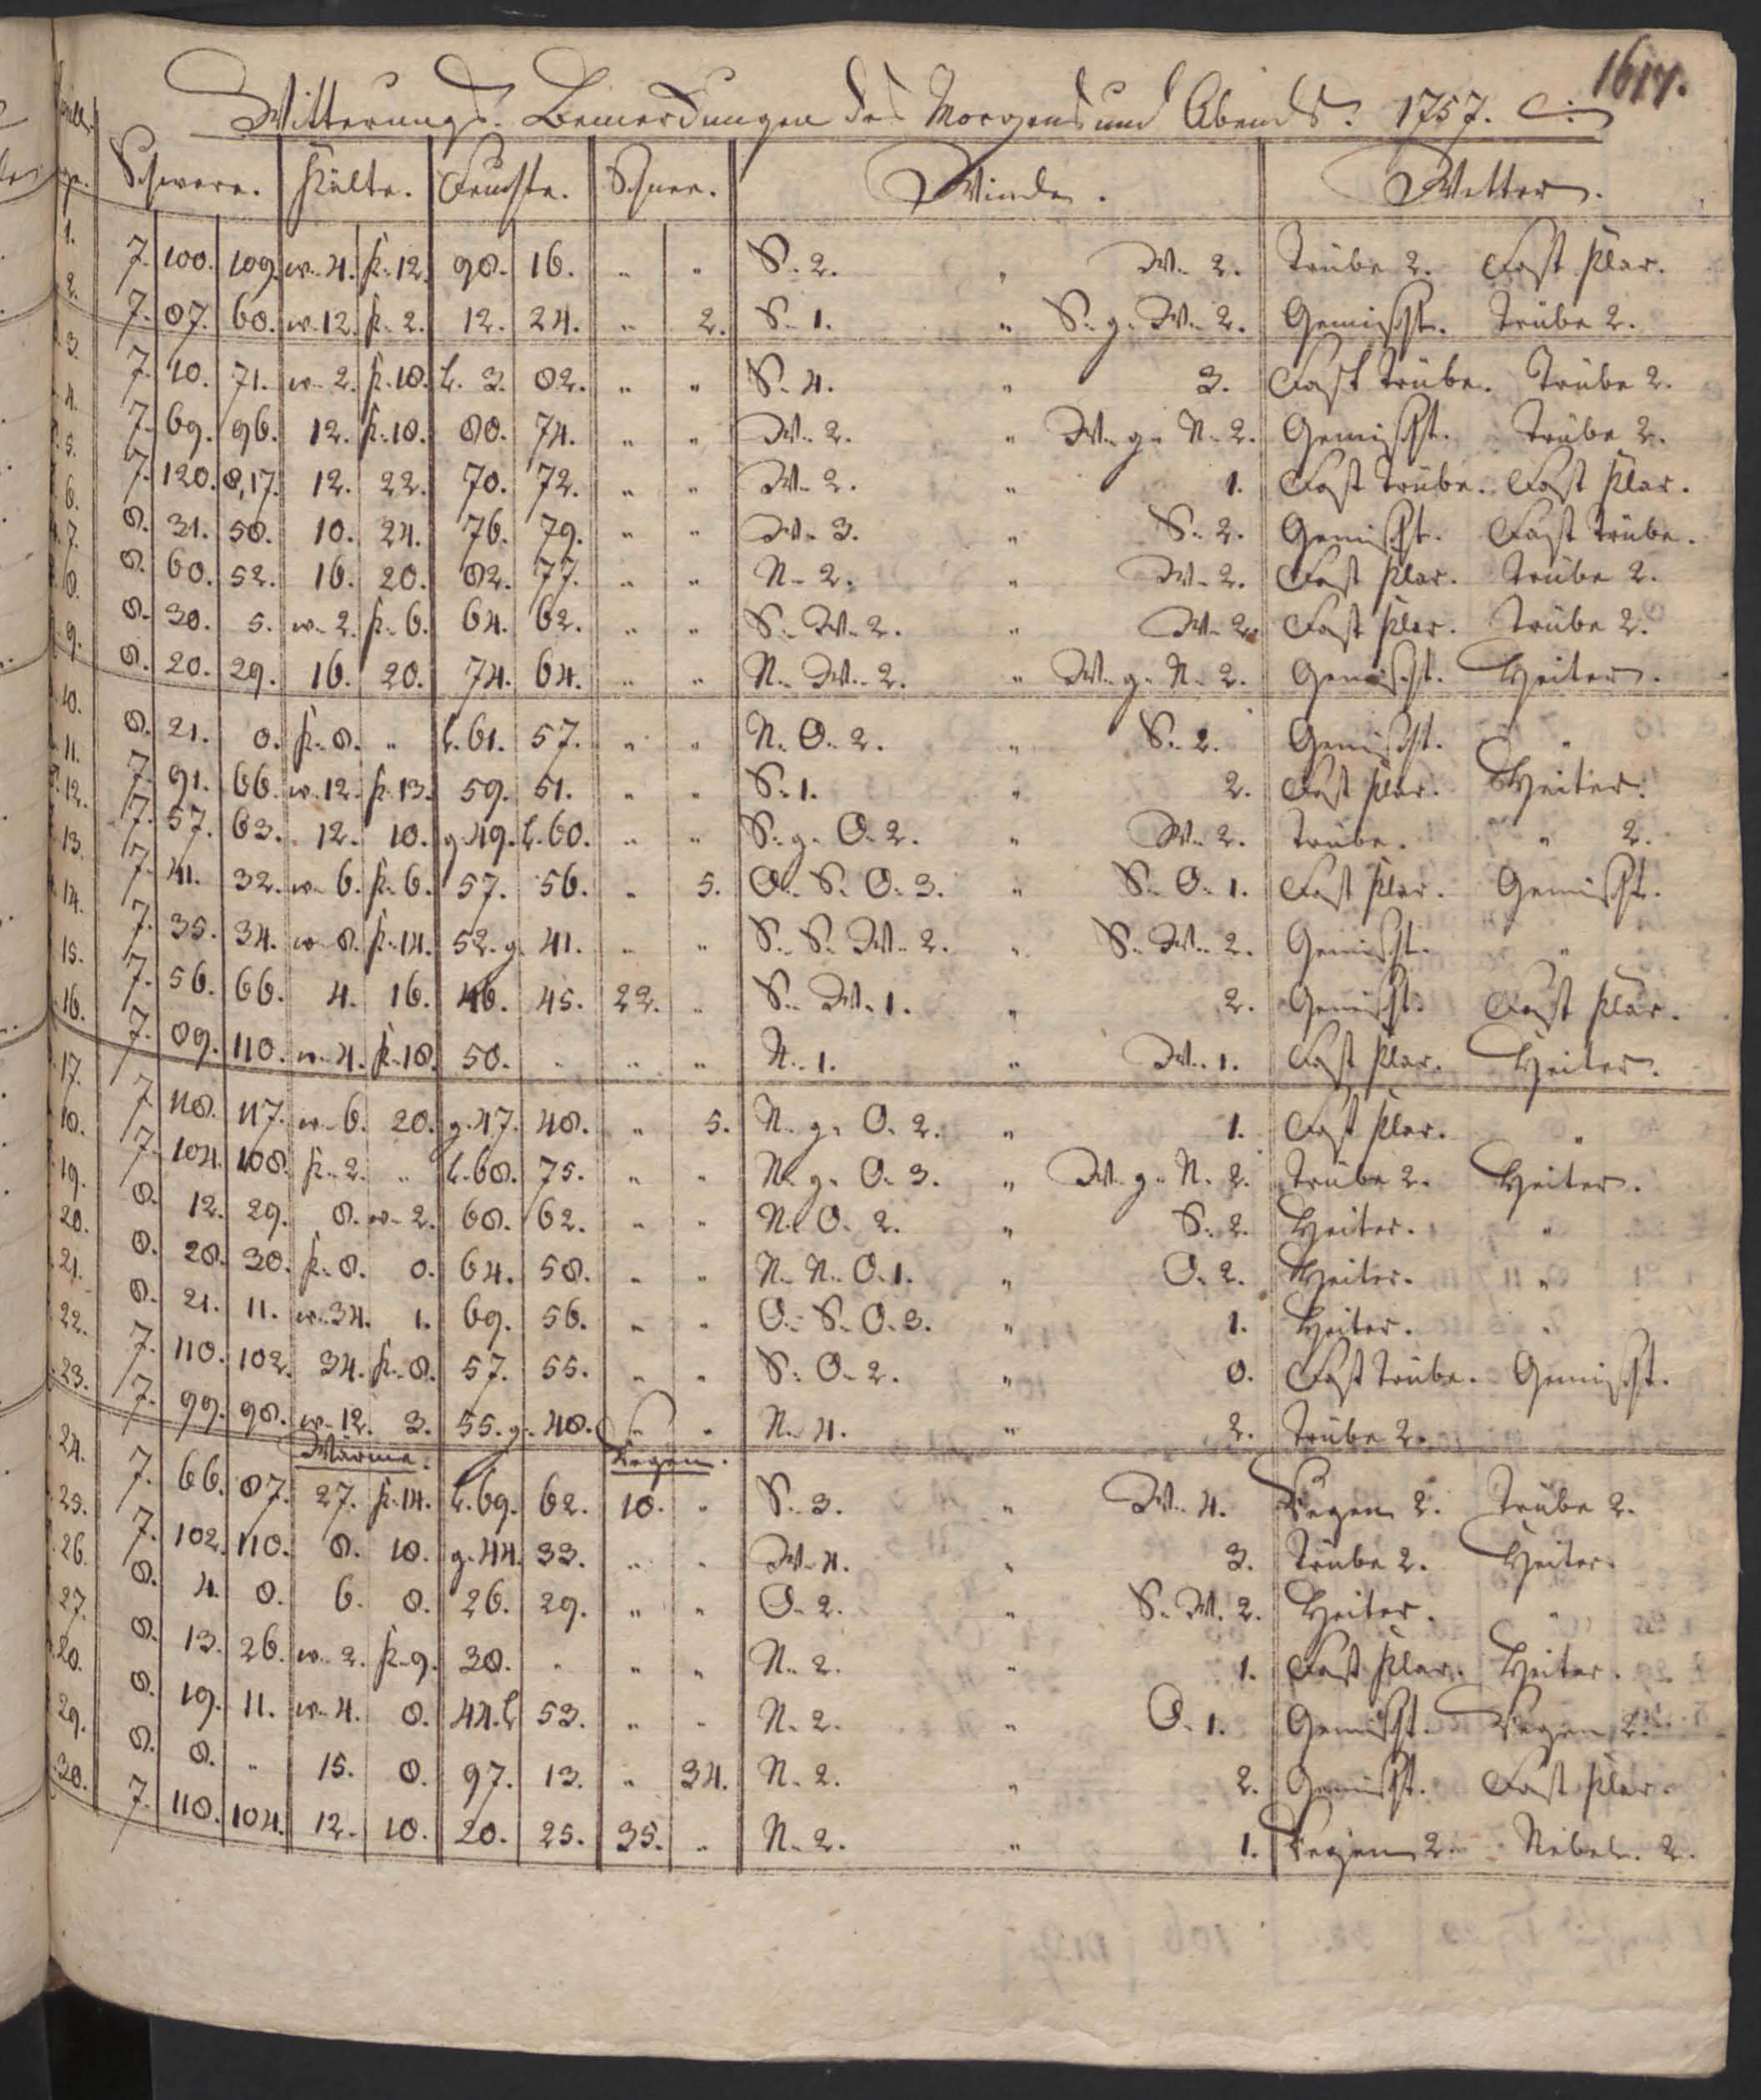 1617.
Witterungs-Bemerckungen des Morgens und Abends. 1757.
Schwere. Kälte. Feuchte. Schnee. Winde. Wetter.
1. 7. 100. 109. w. 4. k. 12. 98. 16. " " S. 2. " W. 2. Trübe 2. Fast klar.
2. 7. 87. 60. w. 12. k. 2. 12. 24. " 2. S. 1. " S. g. W. 2. Gemischt. Trübe 2.
3. 7. 10. 71. w. 2. k. 18. l. 3. 82. " " S. 4. " 3. Fast trübe. Trübe 2.
4. 7. 69. 96. 12. k. 18. 80. 74. " " W. 2. " W. g. N. 2. Gemischt. Trübe 2.
5. 7. 120. 8,17. 12. 22. 70. 72. " " W. 2. " 1. Fast trübe. Fast klar.
6. 8. 31. 58. 10. 24. 76. 79. " " W. 3. " S. 2. Gemischt. Fast trübe.
7. 8. 60. 52. 16. 20. 82. 77. " " N. 2. " W. 2. Fast klar. Trübe 2.
8. 8. 30. 5. w. 2. k. 6. 64. 62. " " S. W. 2. " W. 2. Fast klar. Trübe 2.
9. 8. 20. 29. 16. 20. 74. 64. " " N. W. 2. " W. g. N. 2. Gemischt. Heiter.
10. 8. 21. 0. k. 8. " l. 61. 57. " " N. O. 2. " S. 2. Gemischt. "
11. 7. 91. 66. w. 12. k. 13. 59. 51. " " S. 1. " 2. Fast klar. Heiter.
12. 7. 57. 63. 12. 10. g. 49. l. 60. " " S. g. O. 2. " W. 2. Trübe. " 2.
13. 7. 41. 32. w. 6. k. 6. 57. 56. " 5. O. S. O. 3. " S. O. 1. Fast klar. Gemischt.
14. 7. 35. 34. w. 8. k. 14. 52. g. 41. " " S. S. W. 2. " S. W. 2. Gemischt. "
15. 7. 56. 66. 4. 16. 46. 45. 22. " S. W. 1. " 2. Gemischt. Fast klar.
16. 7. 89. 110. w. 4. k. 18. 50. " " " N. 1. " W. 1. Fast klar. Heiter.
17. 7. 118. 117. w. 6. 20. g. 47. 48. " 5. N. g. O. 2. " 1. Fast klar. "
18. 7. 104. 108. k. 2. " l. 68. 75. " " N. g. O. 3. " W. g. N. 2. Trübe 2. Heiter.
19. 8. 12. 29. 8. w. 2. 68. 62. " " N. O. 2. " S. 2. Heiter. "
20. 8. 28. 30. k. 8. 0. 64. 58. " " N. N. O. 1. " O. 2. Heiter. "
21. 8. 21. 11. w. 34. 1. 69. 56. " " O. S. O. 3. " 1. Heiter. "
22. 7. 110. 102. 34. k. 8. 57. 55. " " S. O. 2. " 0. Fast trübe. Gemischt.
23. 7. 99. 98. w. 12. 3. 55. g. 48. " " N. 4. " 2. Trübe 2.
Wärme. Regen.
24. 7. 66. 87. 27. k. 14. l. 69. 62. 10. " S. 3. " W. 4. Regen 2. Trübe 2.
25. 7. 102. 110. 8. 18. g. 44. 33. " " W. 4. " 3. Trübe 2. Heiter.
26. 8. 4. 0. 6. 0. 26. 29. " " O. 2. " S. W. 2. Heiter. "
27. 8. 13. 26. w. 2. k. 9. 38. " " " N. 2. " 1. Fast klar. Heiter.
28. 8. 19. 11. w. 4. 0. 44. l. 53. " " N. 2. " O. 1. Gemischt. Regen 2.
29. 8. 8. " 15. 0. 97. 13. " 34. N. 2. " 2. Gemischt. Fast klar.
30. 7. 118. 104. 12. 10. 20. 25. 35. " N. 2. " 1. Regen 2. Nebel. 2.